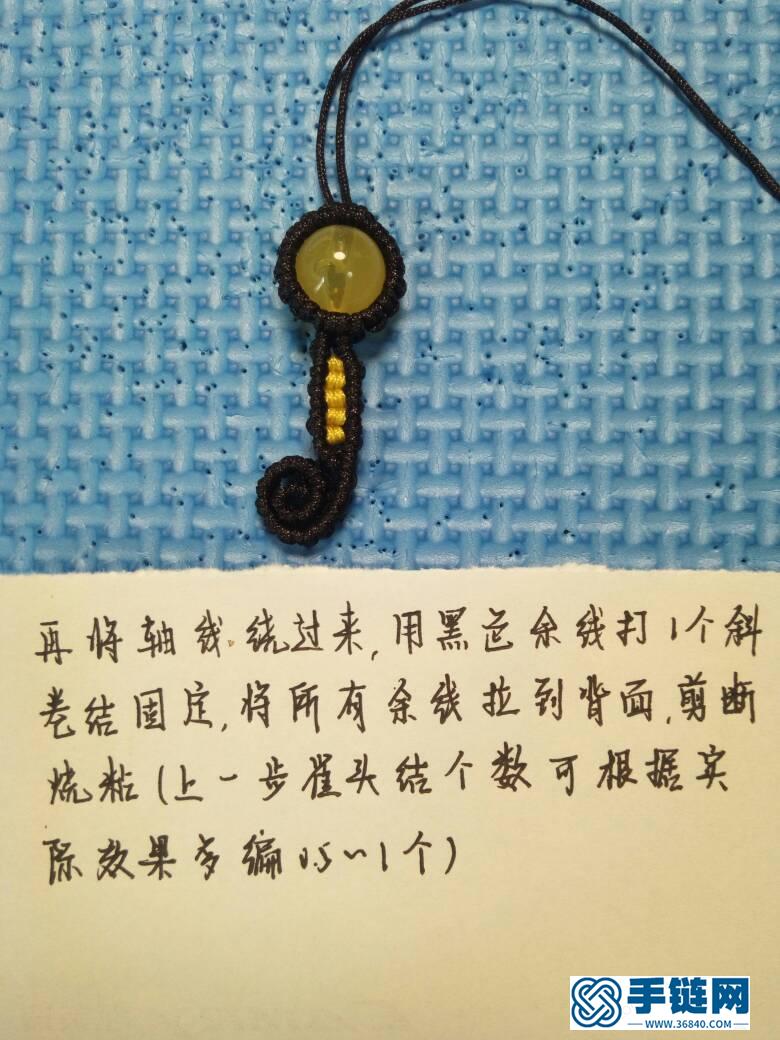 再将轴线绕过来,用黑色余线打1个斜
卷结固定,将所有余线拉到背面,剪断
烧粘(上一步雀头结个数可根据实
际效果多编0.5~1个)
手链网
WWW.36840.COM